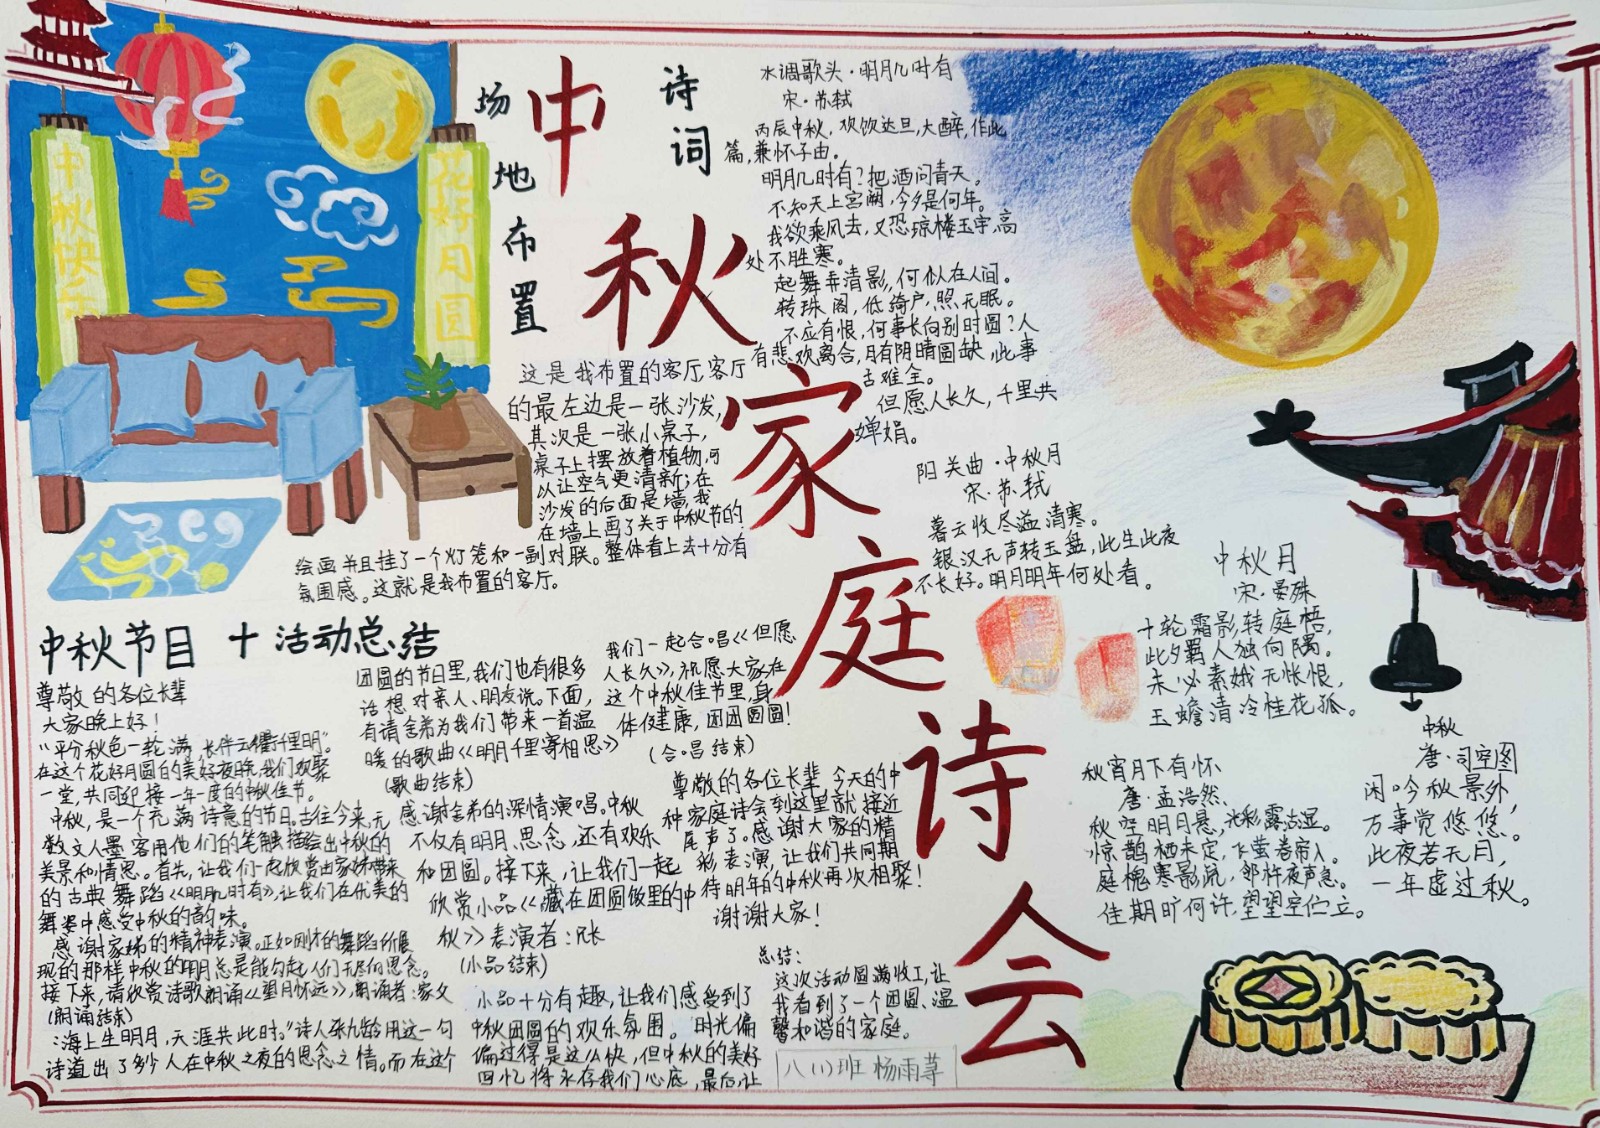 中秋家庭诗会
中秋快乐
花好月圆
场地布置
这是我布置的客厅,客厅
的最左边是一张沙发,
其次是一张小桌子,
桌子上摆放着植物,可
以让空气更清新;在
沙发的后面是墙,我
在墙上画了关于中秋节的
绘画并且挂了一个灯笼和一副对联。整体看上去十分有
氛围感。这就是我布置的客厅。
诗词
水调歌头·明月几时有
宋·苏轼
丙辰中秋,欢饮达旦,大醉,作此
篇,兼怀子由。
明月几时有?把酒问青天。
不知天上宫阙,今夕是何年。
我欲乘风去,又恐琼楼玉宇,高
处不胜寒。
起舞弄清影,何似在人间。
转珠阁,低绮户,照无眠。
不应有恨,何事长向别时圆?人
有悲欢离合,月有阴晴圆缺,此事
古难全。
但愿人长久,千里共
婵娟。
阳关曲·中秋月
宋·苏轼
暮云收尽溢清寒。
银汉无声转玉盘,此生此夜
不长好。明月明年何处看。
中秋月
宋·晏殊
十轮霜影,转庭梧,
此夕羁人独向隅。
未必素娥无怅恨,
玉蟾清冷桂花孤。
秋宵月下有怀
唐·孟浩然
秋空明月悬,光彩露沾湿。
惊鹊栖未定,飞萤卷帘入。
庭槐寒影疏,邻杵夜声急。
佳期旷何许,望望空伫立。
中秋
唐·司空图
闲吟秋景外,
万事觉悠悠。
此夜若无月,
一年虚过秋。
中秋节目+活动总结
尊敬的各位长辈
大家晚上好!
“平分秋色一轮满,长伴云衢千里明”。
在这个花好月圆的美好夜晚,我们欢聚
一堂,共同迎接一年一度的中秋佳节。
中秋,是一个充满诗意的节日。古往今来,无
数文人墨客用他们的笔触描绘出中秋的
美景和情思。首先,让我们一起欣赏由家姊带来
的古典舞蹈《明月几时有》,让我们在优美的
舞姿中感受中秋的韵味。
感谢家姊的精神表演。正如刚才的舞蹈所展
现的那样中秋的明月总是能勾起人们无尽的思念。
接下来,请欣赏诗歌朗诵《望月怀远》,朗诵者:家父
(朗诵结束)
“海上生明月,天涯共此时。”诗人张九龄用这一句
诗道出了多少人在中秋之夜的思念之情。而在这个
团圆的节日里,我们也有很多
话想对亲人、朋友说。下面,
有请舍弟为我们带来一首温
暖的歌曲《明月千里寄相思》
(歌曲结束)
感谢舍弟的深情演唱。中秋
不仅有明月、思念,还有欢乐
和团圆。接下来,让我们一起
欣赏小品《藏在团圆饭里的中
秋》表演者:兄长
(小品结束)
小品十分有趣,让我们感受到了
中秋团圆的欢乐氛围。时光偏
偏过得是这么快,但中秋的美好
回忆将永存我们心底,最后,让
我们一起合唱《但愿
人长久》,祝愿大家在
这个中秋佳节里,身
体健康,团团圆圆!
(合唱结束)
尊敬的各位长辈,今天的中
秋家庭诗会到这里就接近
尾声了。感谢大家的精
彩表演,让我们共同期
待明年的中秋再次相聚!
谢谢大家!
总结:
这次活动圆满收工,让
我看到了一个团圆、温
馨和谐的家庭。
八(1)班 杨雨荨